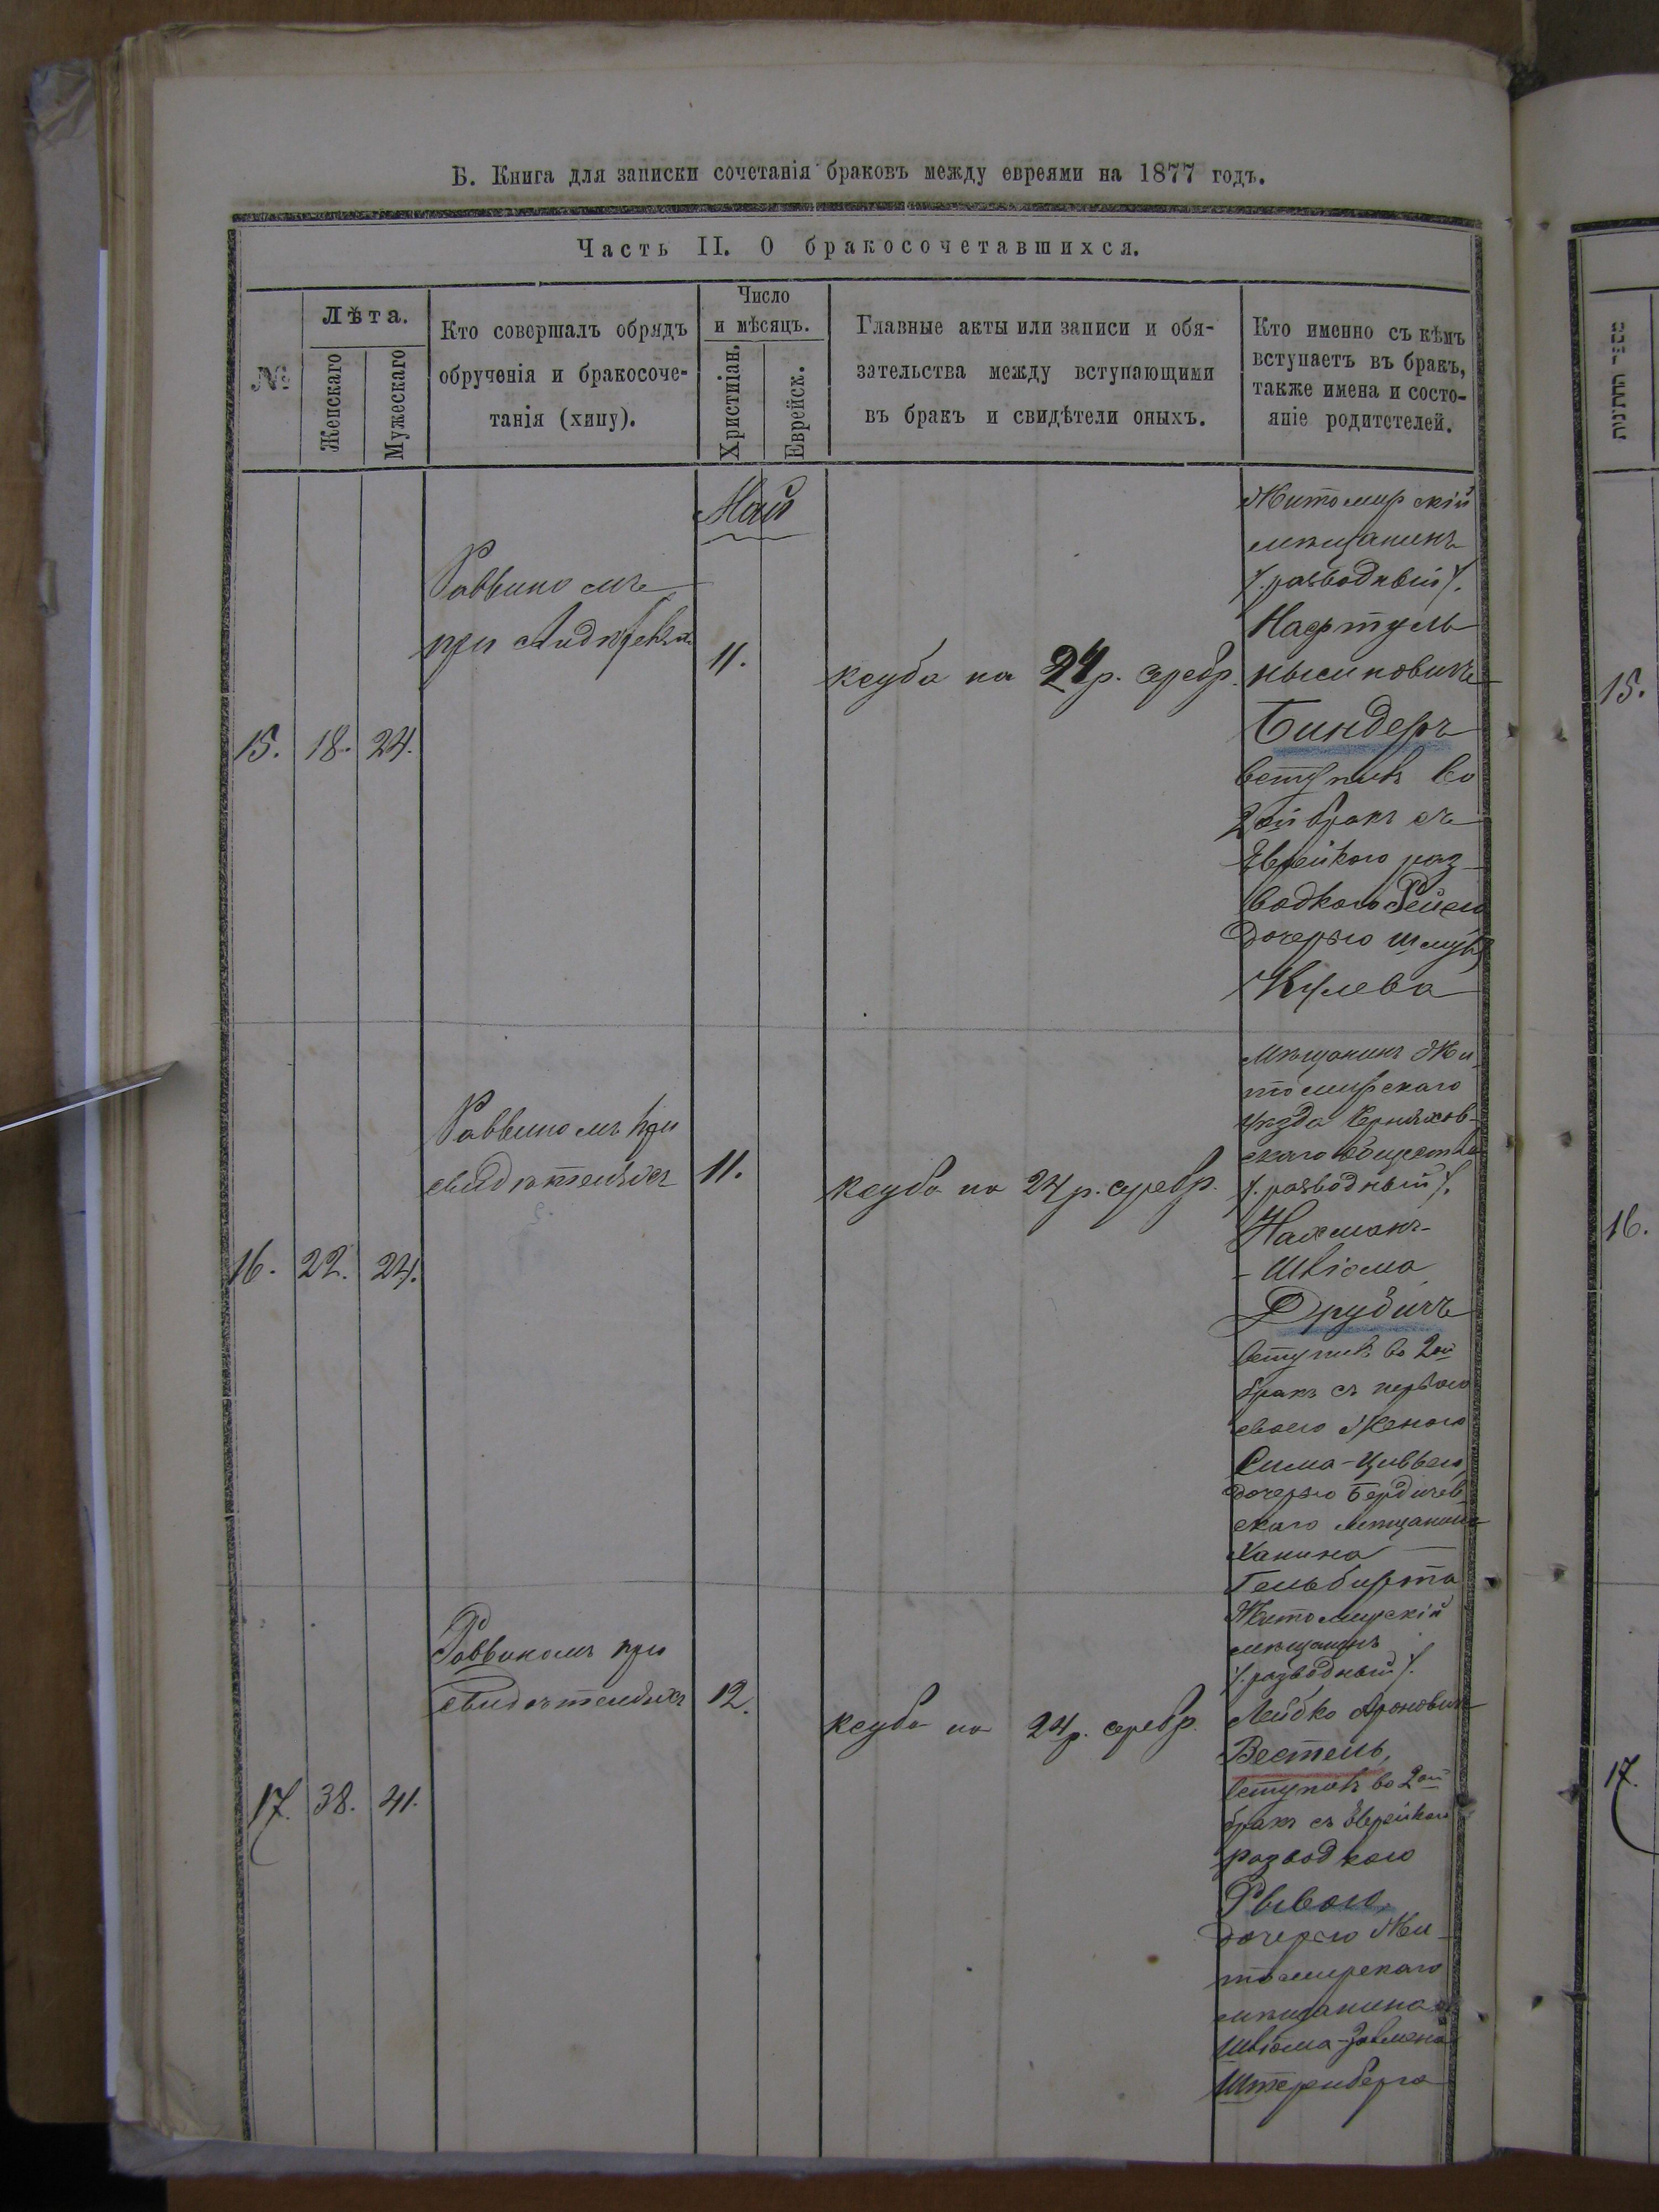 Б. Книга для записки сочетанія браковъ между евреями на 1877 годъ.
Часть II. О бракосочетавшихся.
№
Лѣта.
Женскаго
Мужескаго
Кто совершалъ обрядъ
обрученія и бракосоче-
танія (хипу).
Число
и мѣсяцъ.
Христіан.
Еврейск.
Главные акты или записи и обя-
зательства между вступающими
въ бракъ и свидѣтели оныхъ.
Кто именно съ кѣмъ
вступаетъ въ бракъ,
также имена и состо-
яніе родитетелей.
Май
15. 18. 24.
Раввиномъ
при
11.
ксуба на 24 р. серебр.
Житомирскій
мѣщанинъ
/. разводный /.
Нафтуль
Биндеръ
вступилъ во
2ой бракъ съ
Еврейкою раз-
водкою Рейзею
дочерью
16. 22. 24.
Раввиномъ при
свидѣтеляхъ
11.
ксуба на 24 р. серебр.
Мѣщанинъ Жи-
томирскаго
уѣзда Черняхов-
скаго общества
/. разводный /.
Нахманъ-
-Шліома
Друбичъ
вступилъ во 2ой
бракъ съ первою
своею женою
Сима-Цивьею
дочерью Бердичев-
скаго мѣщанина
Ханина
Гельбирта
17. 38. 41.
Раввиномъ при
свидѣтеляхъ
12.
ксуба на 24 р. серебр.
Житомирскій
мѣщанинъ
/. разводный /.
Лейбко Ароновичъ
Вестель,
вступилъ во 2ой
бракъ съ Еврейкою
разводкою
Рывою,
дочерью Жи-
томирскаго
мѣщанина
Шліома-Залмана
Штеренберга
15.
16.
17.